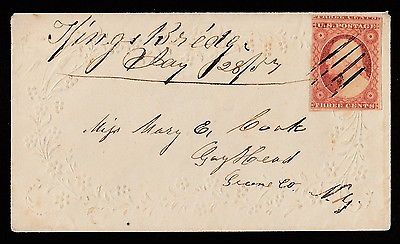 Kings Bridge
May 28/57
U.S. POSTAGE
THREE CENTS
Miss Mary E, Cook
Gay Head
Greene Co
N.Y.